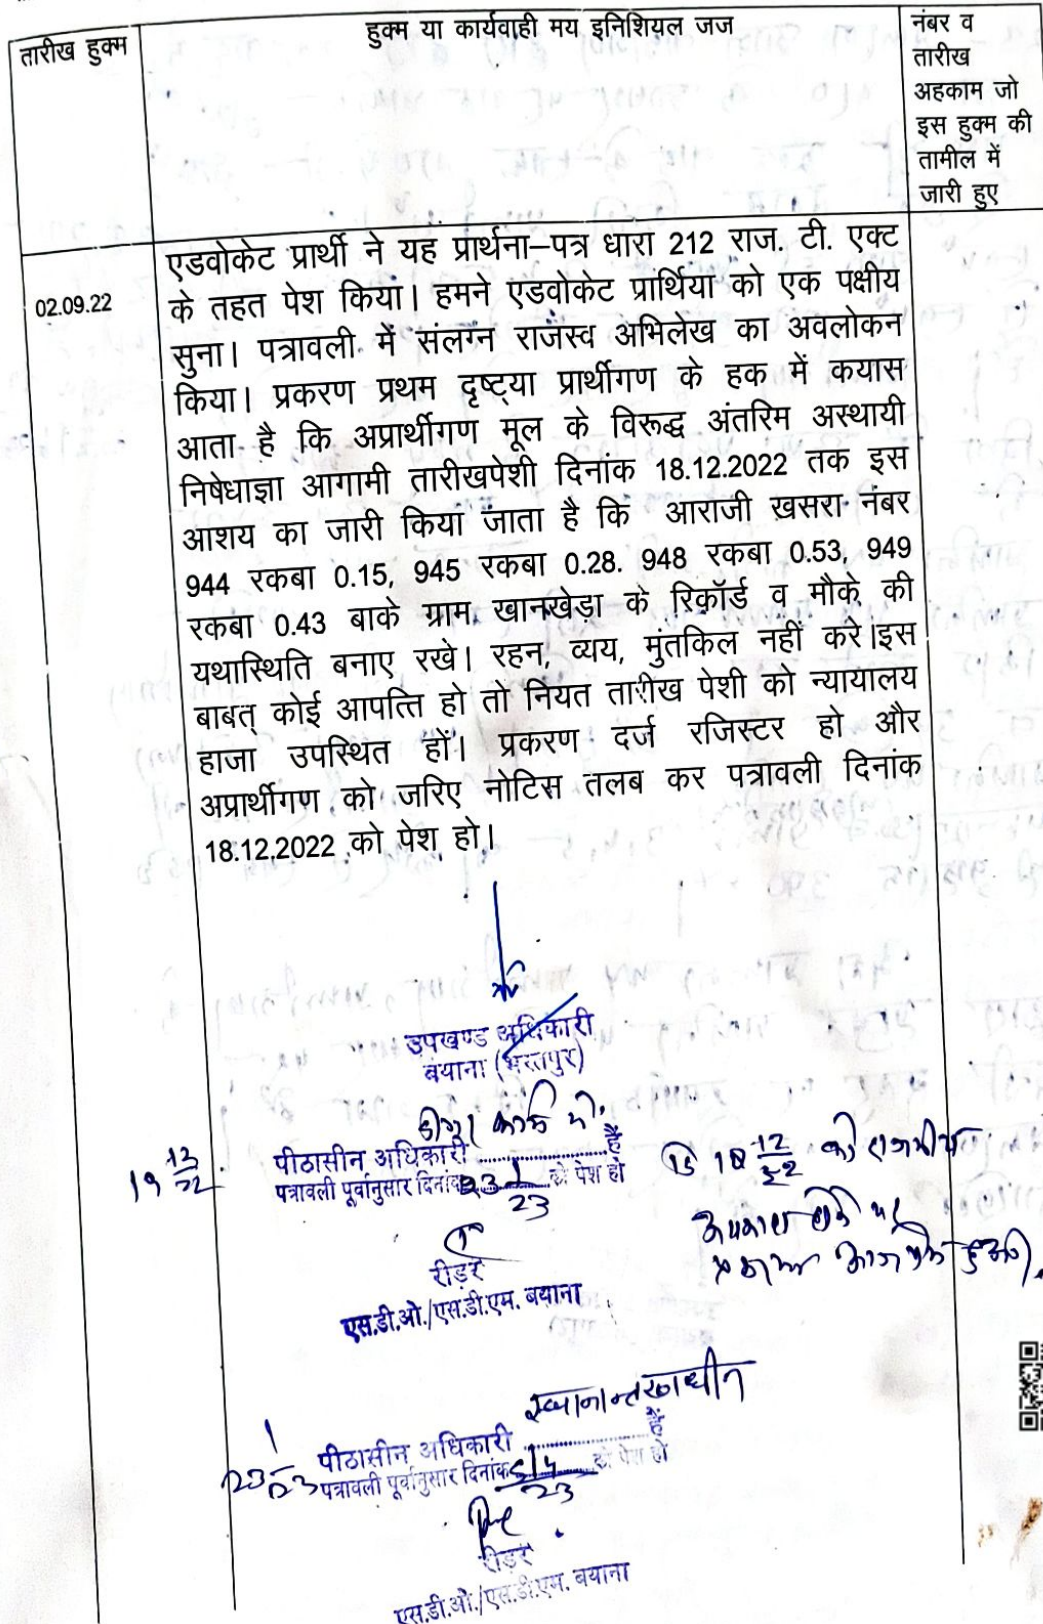 तारीख हुक्म
हुक्म या कार्यवाही मय इनिशियल जज
नंबर व
तारीख
अहकाम जो
इस हुक्म की
तामील में
जारी हुए
02.09.22
एडवोकेट प्रार्थी ने यह प्रार्थना–पत्र धारा 212 राज. टी. एक्ट
के तहत पेश किया। हमने एडवोकेट प्रार्थिया को एक पक्षीय
सुना। पत्रावली में संलग्न राजस्व अभिलेख का अवलोकन
किया। प्रकरण प्रथम दृष्ट्या प्रार्थीगण के हक में कयास
आता है कि अप्रार्थीगण मूल के विरूद्ध अंतरिम अस्थायी
निषेधाज्ञा आगामी तारीखपेशी दिनांक 18.12.2022 तक इस
आशय का जारी किया जाता है कि आराजी खसरा नंबर
944 रकबा 0.15, 945 रकबा 0.28. 948 रकबा 0.53, 949
रकबा 0.43 बाके ग्राम खानखेड़ा के रिकॉर्ड व मौके की
यथास्थिति बनाए रखे। रहन, व्यय, मुंतकिल नहीं करे।इस
बाबत् कोई आपत्ति हो तो नियत तारीख पेशी को न्यायालय
हाजा उपस्थित हों। प्रकरण दर्ज रजिस्टर हो और
अप्रार्थीगण को जरिए नोटिस तलब कर पत्रावली दिनांक
18.12.2022 को पेश हो।
उपखण्ड अधिकारी
बयाना (भरतपुर)
19 12/22
पीठासीन अधिकारी ........ हैं
पत्रावली पूर्वानुसार दिनांक 23 1/23 को पेश हो
रीडर
एस.डी.ओ./एस.डी.एम. बयाना
18 12/22 को राजकीय
अवकाश होने पर
आज पेश हुआ।
स्थानान्तरणाधीन
23 1/23
पीठासीन अधिकारी ........ हैं
पत्रावली पूर्वानुसार दिनांक 5/4/23 को पेश हो
रीडर
एस.डी.ओ./एस.डी.एम. बयाना